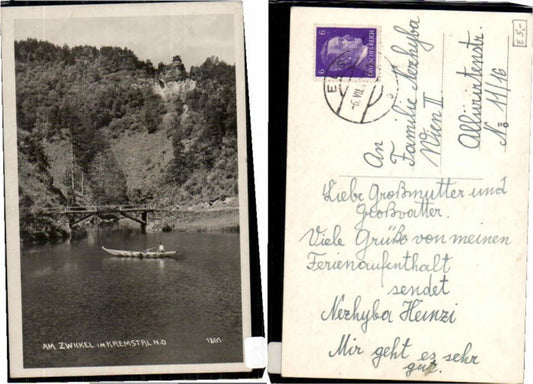 AM ZWICKEL IM KREMSTAL N.Ö
1261.
6
6
DEUTSCHES REICH
-6. VII.
£ 5,-
An
Familie Nezhyba
Wien II
Alliiertenstr.
№ 11/16
Liebe Großmutter und
Großvatter.
Viele Grüße von meinen
Ferienaufenthalt
sendet
Nezhyba Heinzi
Mir geht es sehr
gut.